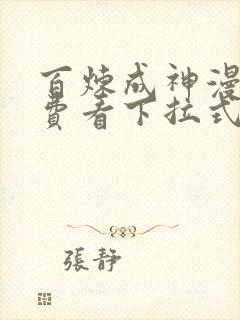 百炼成神漫
费看下拉式
張靜